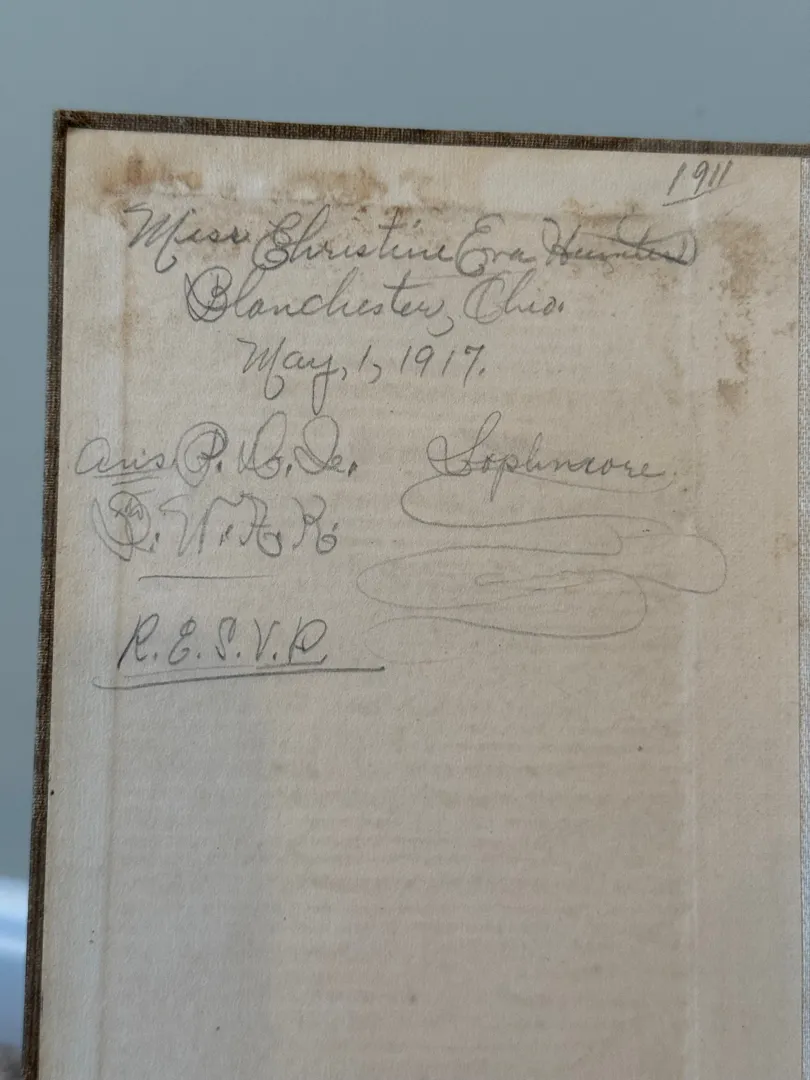 1911
Miss Christine Eva Hunter
Blanchester, Ohio.
May, 1, 1917.
ans P. D. Q. Sophmore.
W. A. K.
R. E. S. V. P.